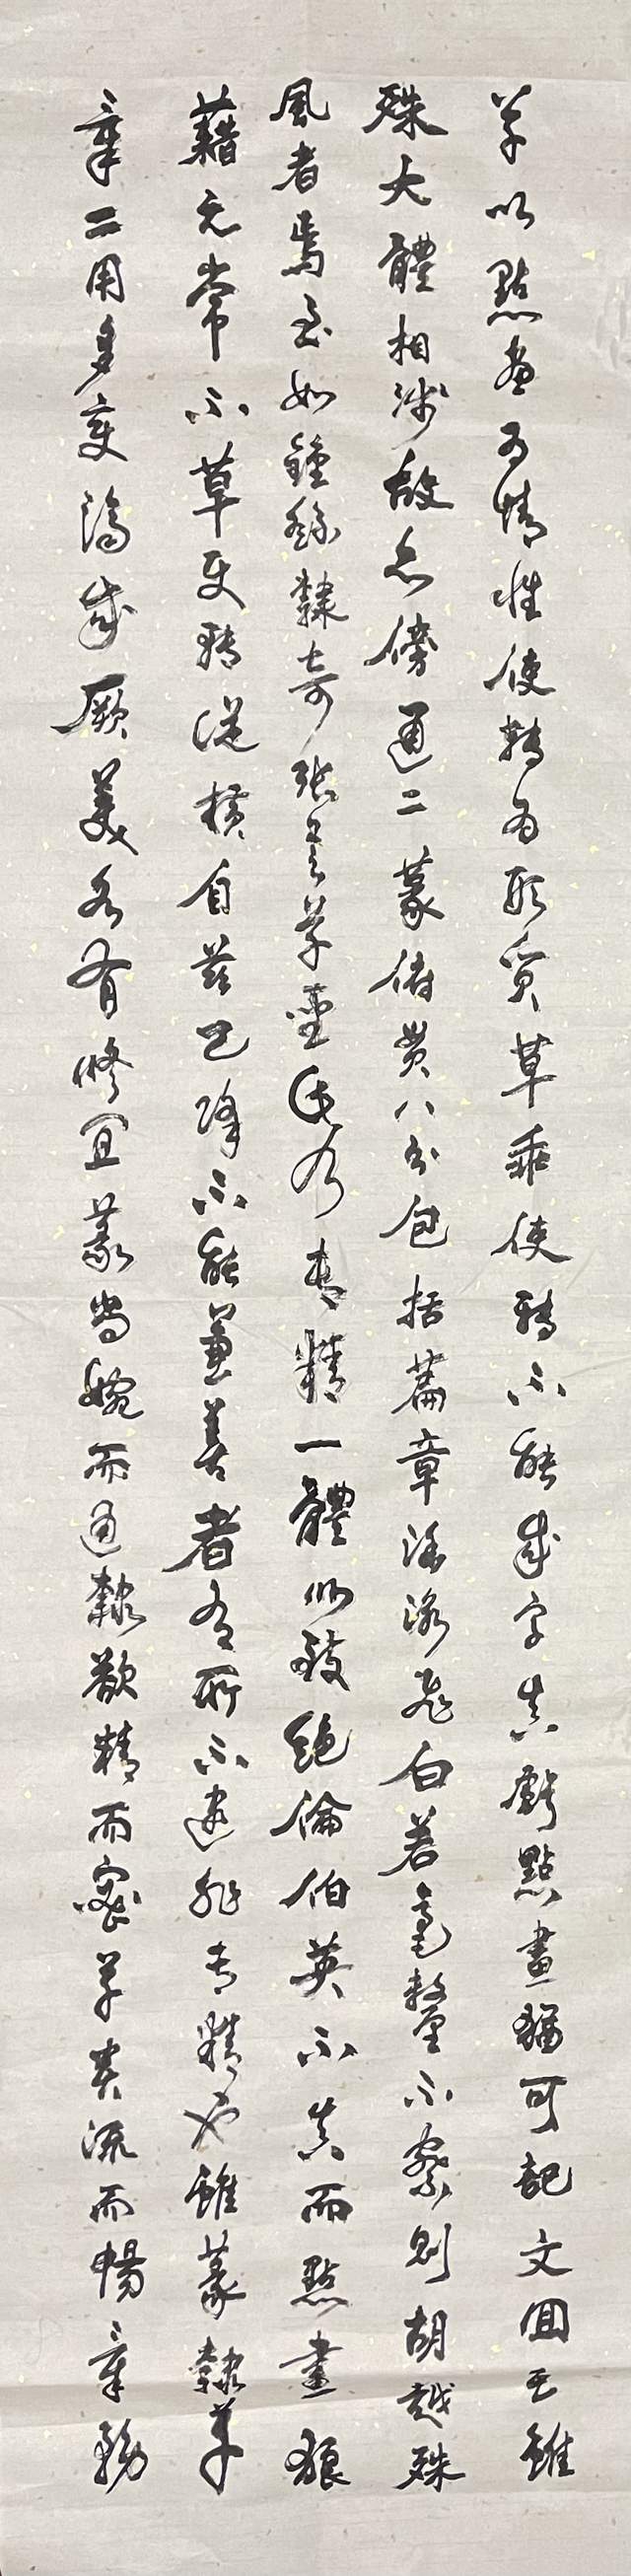 草以點畫為情性使轉為形質草乖使轉不能成字真虧點畫猶可記文回互雖
殊大體相涉故亦傍通二篆俯貫八分包括篇章涵泳飛白若毫釐不察則胡越殊
風者焉至如鍾繇隸奇張芝草聖此乃專精一體以致絕倫伯英不真而點畫狼
藉元常不草使轉從橫自茲已降不能兼善者有所不逮非專精也雖篆隸草
章工用多變濟成厥美各有攸宜篆尚婉而通隸欲精而密草貴流而暢章務